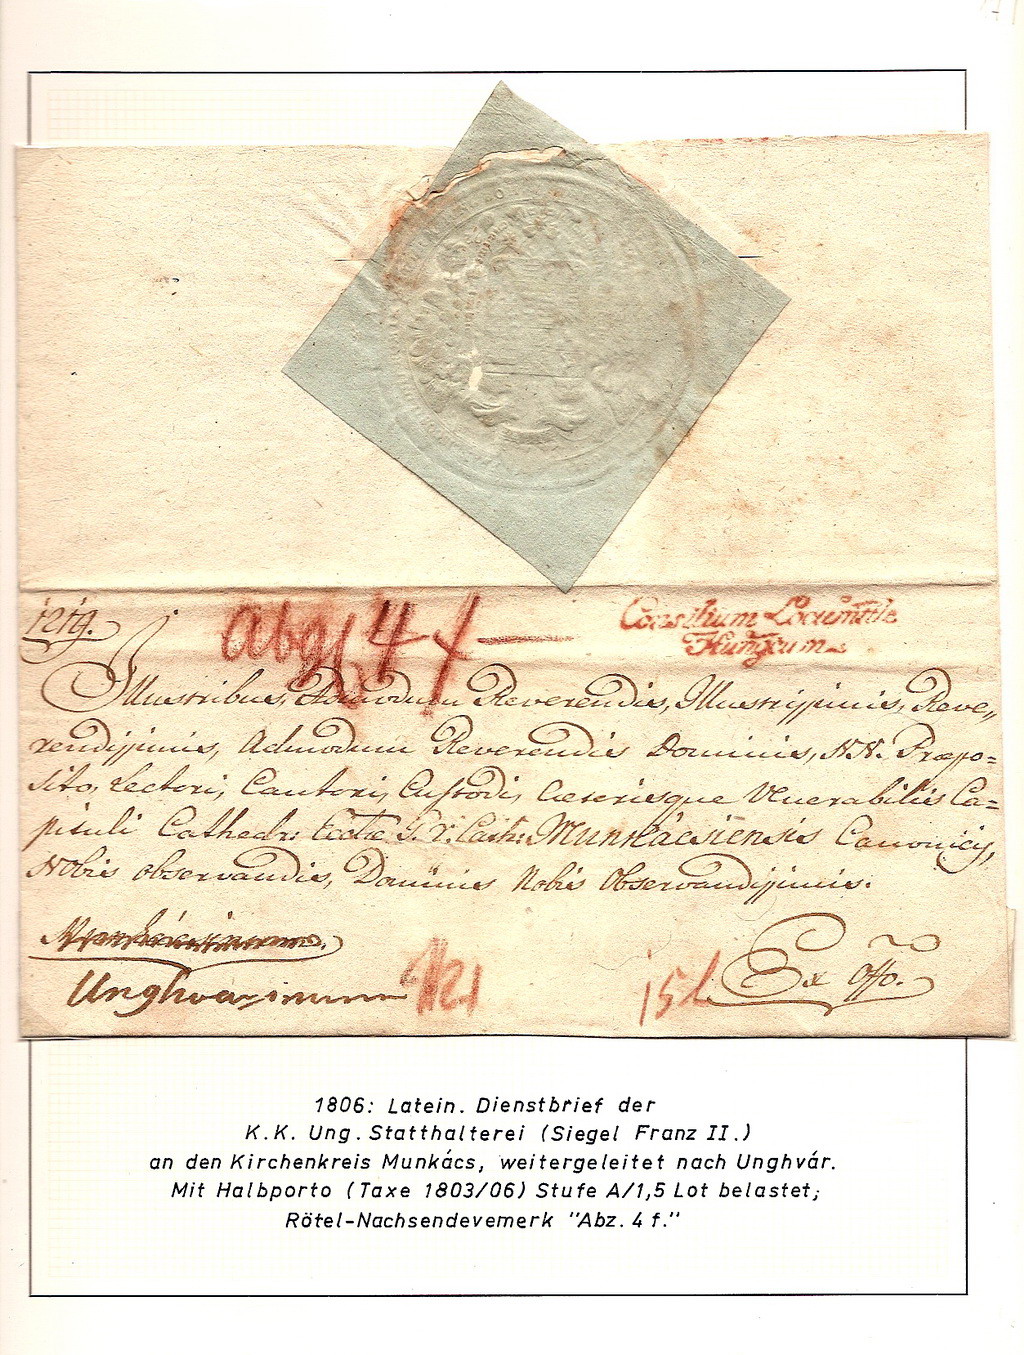 abz. 4 f
Consilium Locumttle
Hungcum
Illustribus, Admodum Reverendis, Illustrissimis, Reve„
rendissimis, Admodum Reverendis Dominis, N.N. Præpo=
sito, Lectori, Cantori, Custodi, Cæterisque Venerabilis Ca=
pituli Cathedr: Eccliæ G. R. Cath: Munkácsiensis Canonicis,
Nobis observandis, Dominis Nobis Observandissimis.
Unghvarinum
15 L
Ex offo.
1806: Latein. Dienstbrief der
K.K. Ung. Statthalterei (Siegel Franz II.)
an den Kirchenkreis Munkács, weitergeleitet nach Unghvár.
Mit Halbporto (Taxe 1803/06) Stufe A/1,5 Lot belastet;
Rötel-Nachsendevemerk "Abz. 4 f."